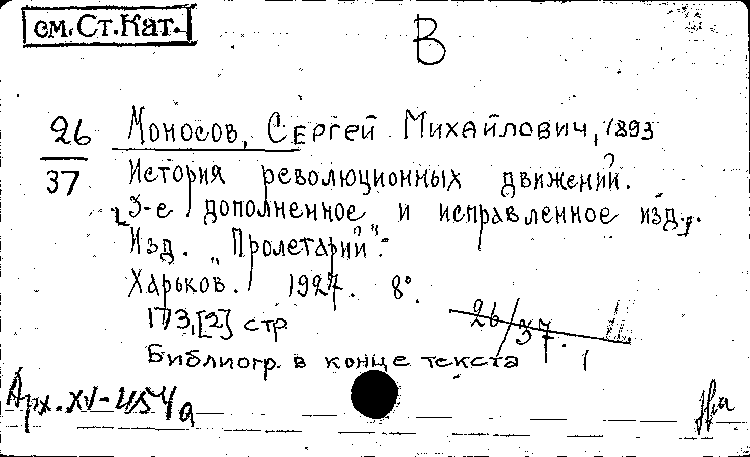 см. Ст. Кат.
В
26
37
Моносов, Сергей Михайлович, 1893
История революционных движений.
3-е дополненное и исправленное изд.
Изд. "Пролетарий".
Харьков. 1927. 8°.
173,[2] стр
Библиогр. в конце текста
26/37.
Арх. XV-454а